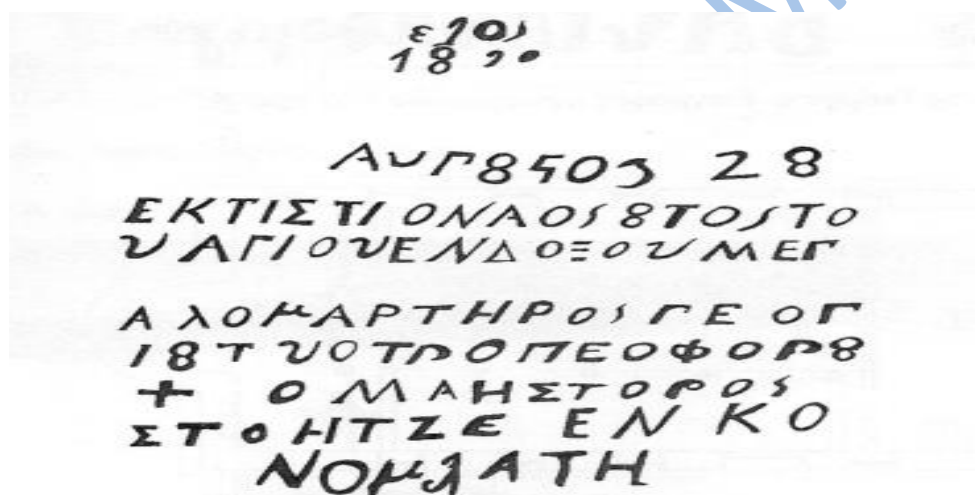 ετος
18 20
Αυγ8ςτος 28
ΕΚΤΙΣΤΙ Ο ΝΑΟς 8ΤΟς ΤΟ
Υ ΑΓΙΟΥ ΕΝΔΟΞΟΥ ΜΕΓ
ΑλΟΜΑΡΤΗΡΟς ΓΕΟΓ
Ι8 ΤΥΟ ΤΡΟΠΕΟΦΟΡ8
+ Ο ΜΑΗΣΤΟΡΟς
ΣΤΟΗΤΖΕ ΕΝ ΚΟ